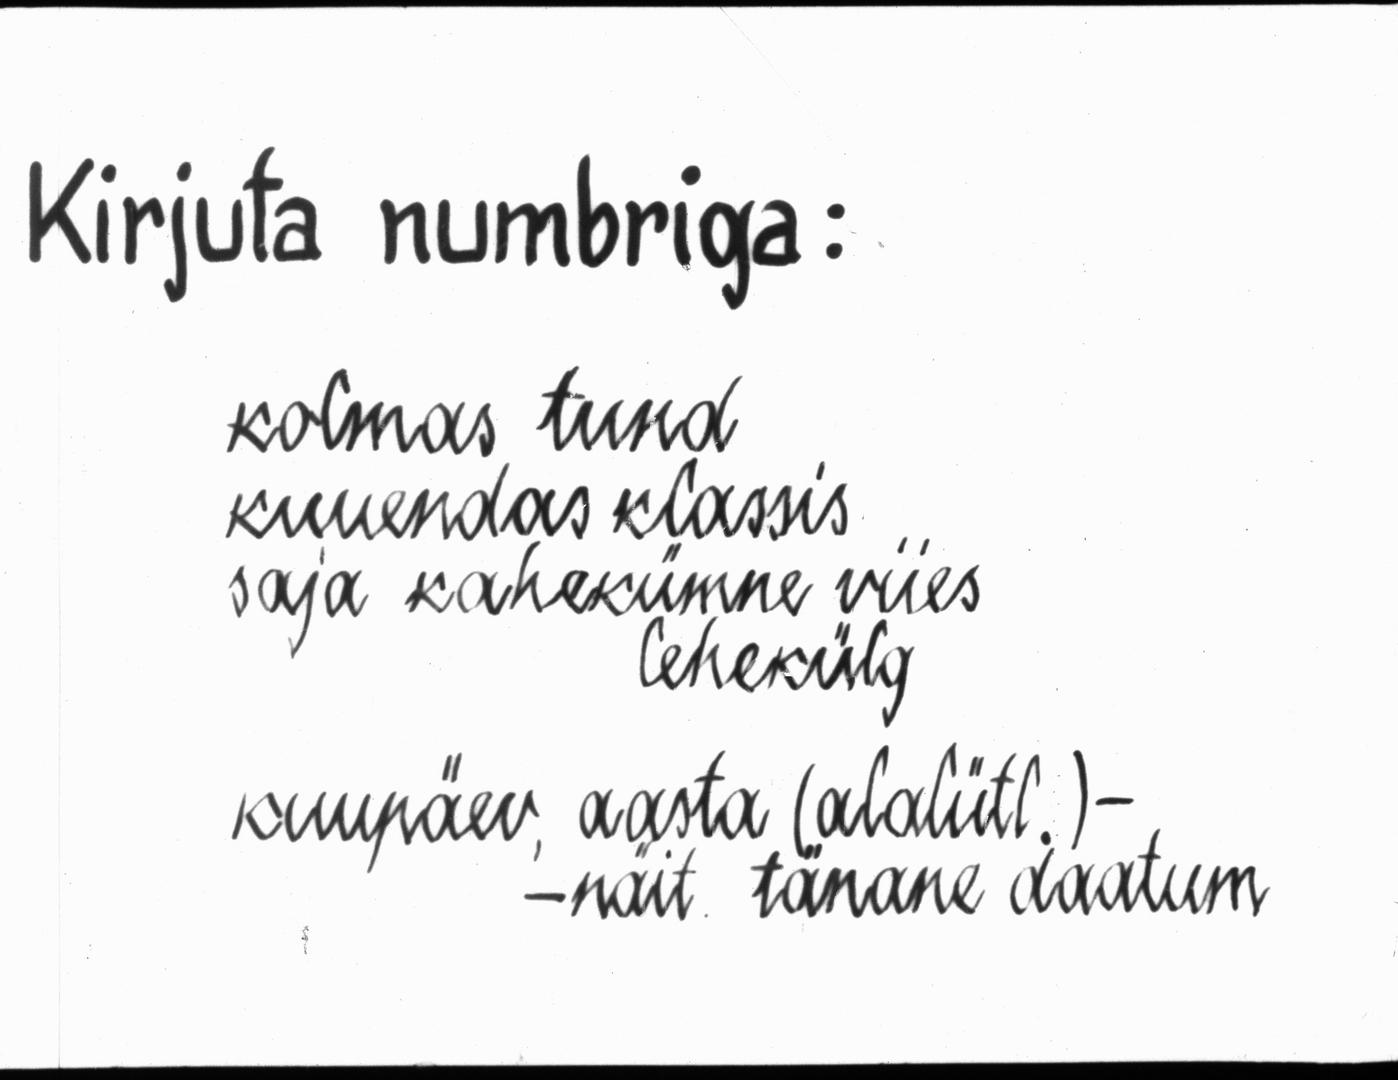 Kirjuta numbriga:
kolmas tund
kuuendas klassis
saja kahekümne viies
lehekülg
kuupäev, aasta (alalütl.)-
-näit. tänane daatum